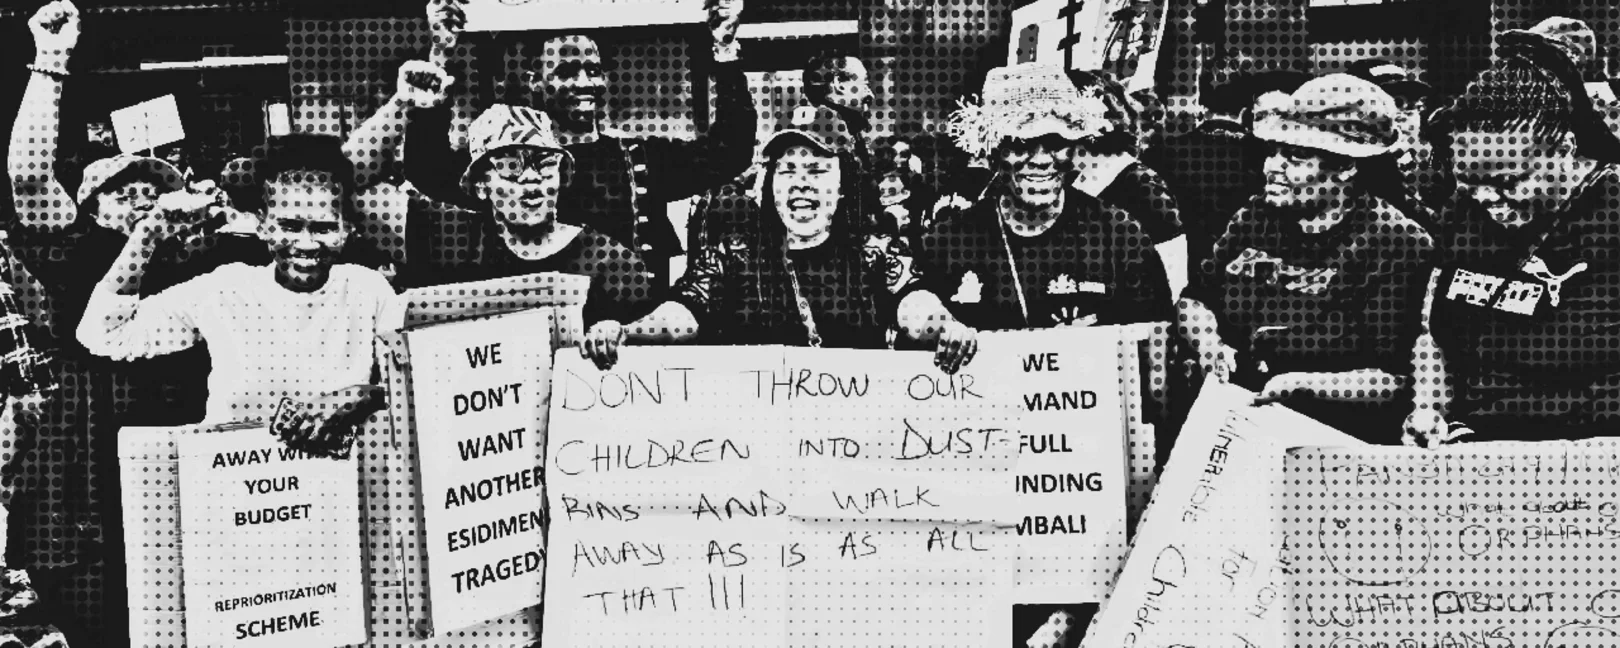 AWAY
YOUR
BUDGET
REPRIORITIZATION
SCHEME
WE
DON'T
WANT
ANOTHER
ESIDIMEN
TRAGEDY
DON'T THROW OUR
CHILDREN INTO DUST-
BINS AND WALK
AWAY AS IS AS ALL
THAT !!!
WE
MAND
FULL
NDING
MBALI
Vulnerable
Children
For
what about
ORPHANS
WHAT ABOUT
ORPHANS